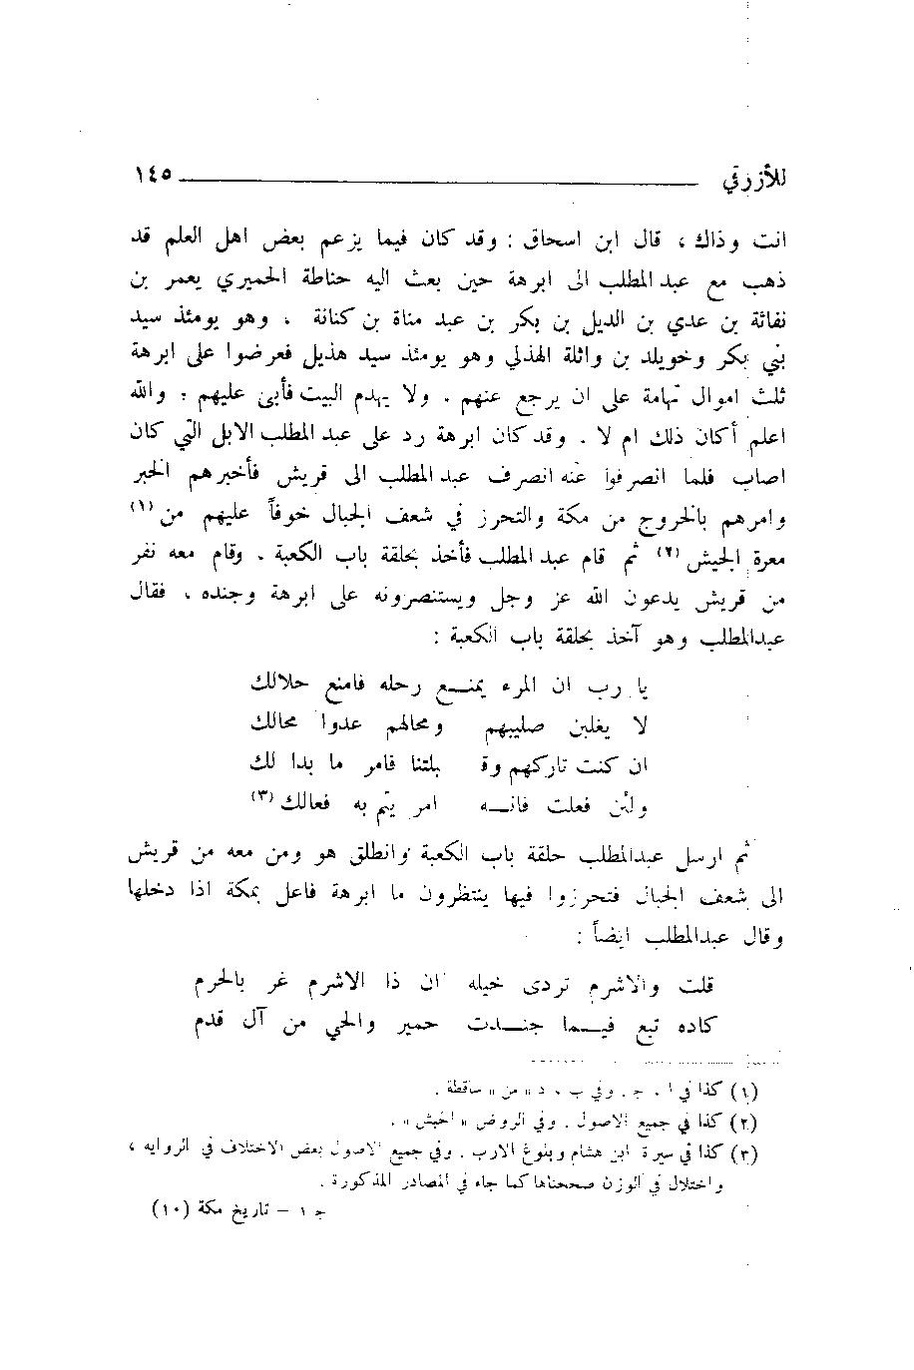 للأزرقي ١٤٥
انت وذاك ، قال ابن اسحاق : وقد كان فيما يزعم بعض اهل العلم قد
ذهب مع عبد المطلب الى ابرهة حين بعث اليه حناطة الحميري يعمر بن
نفاثة بن عدي بن الديل بن بكر بن عبد مناة بن كنانة ، وهو يومئذ سيد
بني بكر وخويلد بن واثلة الهذلي وهو يومئذ سيد هذيل فعرضوا على ابرهة
ثلث اموال تهامة على ان يرجع عنهم . ولا يهدم البيت فأبى عليهم ، والله
اعلم أكان ذلك ام لا . وقد كان ابرهة رد على عبد المطلب الابل التي كان
اصاب فلما انصرفوا عنه انصرف عبد المطلب الى قريش فأخبرهم الخبر
وامرهم بالخروج من مكة والتحرز في شعف الجبال خوفاً عليهم من (١)
معرة الجيش (٢) ثم قام عبد المطلب فأخذ بحلقة باب الكعبة . وقام معه نفر
من قريش يدعون الله عز وجل ويستنصرونه على ابرهة وجنده ، فقال
عبدالمطلب وهو آخذ بحلقة باب الكعبة :
يا رب ان المرء يمنـــع رحله فامنع حلالك
لا يغلبن صليبهم ومحالهم عدوا محالك
ان كنت تاركهم وقـ بلتنا فامر ما بدا لك
ولئن فعلت فانـــه امر يتم به فعالك (٣)
ثم ارسل عبدالمطلب حلقة باب الكعبة وانطلق هو ومن معه من قريش
الى شعف الجبال فتحرزوا فيها ينتظرون ما ابرهة فاعل بمكة اذا دخلها
وقال عبدالمطلب ايضاً :
قلت والاشرم تردى خيله ان ذا الاشرم غر بالحرم
كاده تبع فيـــما جنـــدت حمير والحي من آل قدم
(١) كذا في ا ، ج . وفي ب ، د « من » ساقطة .
(٢) كذا في جميع الاصول . وفي الروض « الحبش » .
(٣) كذا في سيرة ابن هشام وبلوغ الارب . وفي جميع الاصول بعض الاختلاف في الرواية ،
واختلال في الوزن صححناها كما جاء في المصادر المذكورة .
ج ١ – تاريخ مكة (١٠)